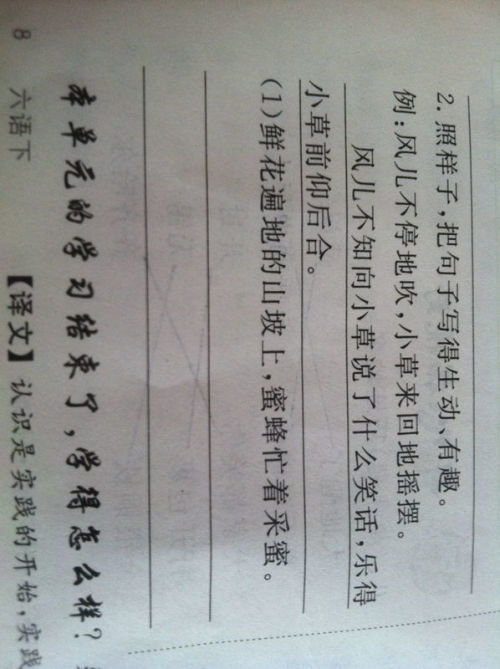 2.照样子,把句子写得生动、有趣。
例:风儿不停地吹,小草来回地摇摆。
风儿不知向小草说了什么笑话,乐得
小草前仰后合。
(1)鲜花遍地的山坡上,蜜蜂忙着采蜜。
本单元的学习结束了,学得怎么样?
8 六语下 【译文】认识是实践的开始,实践